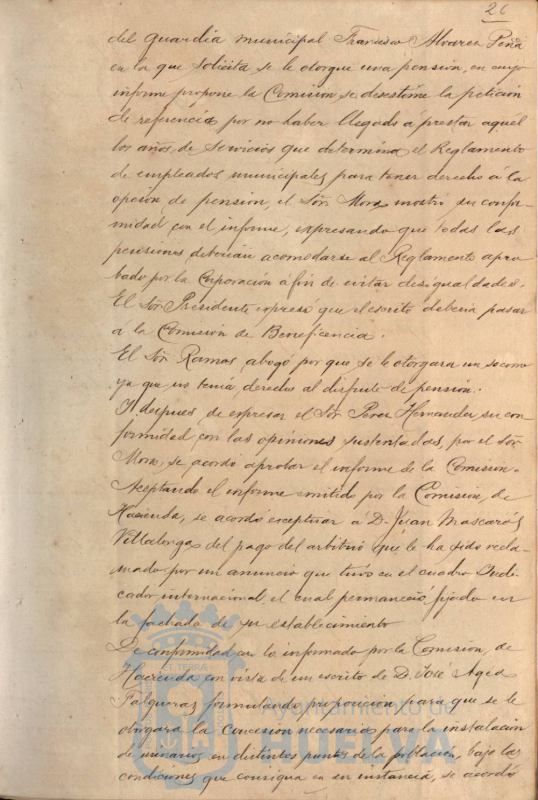 26
del guardia municipal Francisco Alvarez Peña
en la que solicita se le otorgue una pensión, en cuyo
informe propone la Comision se desestime la petición
de referencia por no haber llegado a prestar aquel
los años de servicios que determina el Reglamento
de empleados municipales para tener derecho á la
opción de pensión, el Sör. Mora mostró su confor-
midad con el informe, expresando que todas las
pensiones deberian acomodarse al Reglamento apro-
bado por la Corporación á fin de evitar desigualdades.
El Sör. Presidente expresó que el escrito deberia pasar
a la Comisión de Beneficencia.
El Sör. Ramos, abogó por que se le otorgara un socorro
ya que no tenia derecho al disfrute de pensión.
Y despues de expresar el Sör. Perez Hernandez su con-
formidad con las opiniones sustentadas, por el Sör.
Mora, se acordó aprobar el informe de la Comision.
Aceptando el informe emitido por la Comisión de
Hacienda, se acordó exceptuar á D. Juan Mascarós
Villalonga del pago del arbitrio que le ha sido recla-
mado por un anuncio que tuvo en el cuadro Indi-
cador internacional, el cual permaneció fijado en
la fachada de su establecimiento
De conformidad con lo informado por la Comision de
Hacienda con vista de un escrito de D. José
Falgueras formulando proposicion para que se le
otorgara la concesion necesaria para la instalación
de urinarios en distintos puntos de la población, bajo las
condiciones que consigna en su instancia, se acordó
ET TERRÆ
Ayuntamiento de
HUELVA